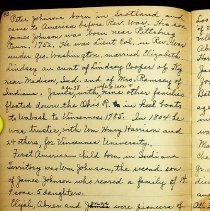 Peter Johnson born in Scotland and
came to America before Rev. War. His son
James Johnson was born near Pittsburg
Penn. 1752. He was Lieut Col. in Rev. War
under Geo. Washington, married Elizabeth
Lindsay, an aunt of Lindsay Cooper of Ky
near Madison, Ind. and of Mrs. Ramsey of
Indiana. Jam with nine other families
floated down the Ohio R. in keel boats
to Wabash to Vincennes 1785. In 1804 he
was trustee, with Wm Henry Harrison and
others, for Vincennes University.
First American child born in Indiana
Territory was Jno. Johnson, the second son
of James Johnson who reared a family of
sons & 5 daughters.
Elijah, Abner and were pioneers of